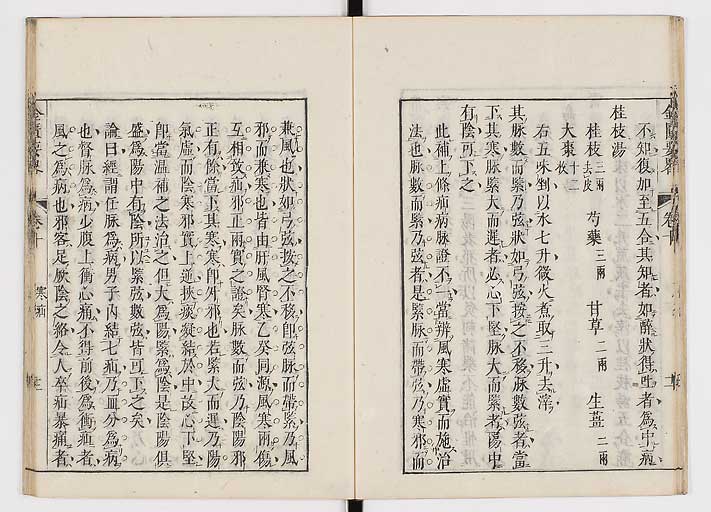 不知復加至五合其知者如醉狀得吐者爲中病
桂枝湯
桂枝三兩去皮 芍藥三兩 甘草二兩 生薑二兩
大棗十二枚
右五味剉以水七升微火煮取三升去滓
其脉數而緊乃弦狀如弓弦按之不移脉數弦者當
下其寒脉緊大而遲者必心下堅脉大而緊者陽中
有陰可下之
此補上條疝病脉證不一當辨風寒虛實而施治
法也脉數而緊乃弦者是緊脉而帶弦乃寒邪而
兼風也狀如弓弦按之不移卽弦脉而帶緊乃風
邪而兼寒也皆由肝風腎寒乙癸同源風寒兩傷
互相致疝邪正兩實之證矣脉數而弦乃陰陽邪
正有餘當下其寒寒卽外邪也若緊大而遲乃陽
氣虛而陰寒邪實上逆挾痰凝結於中故心下堅
卽當溫補之法治之但大爲陽緊爲陰是陰陽俱
盛爲陽中有陰所以緊弦數弦皆可下之矣
論曰經謂任脉爲病男子內結七疝乃血分爲病
也督脉爲病少腹上衝心痛不得前後爲衝疝者
風之爲病也邪客足厥陰之絡令人卒疝暴痛者
卷十
寒疝